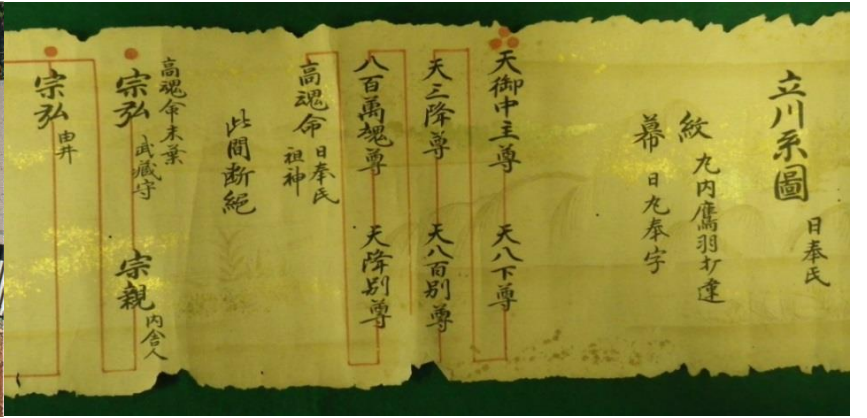 立川系圖
日奉氏
紋 丸内鷹羽打違
幕 日丸奉字
天御中主尊 天八下尊
天三降尊 天八百別尊
八百萬魂尊 天降別尊
高魂命 日奉氏祖神
此間断絶
高魂命末葉
宗弘 武蔵守 宗親 内舎人
宗弘 由井